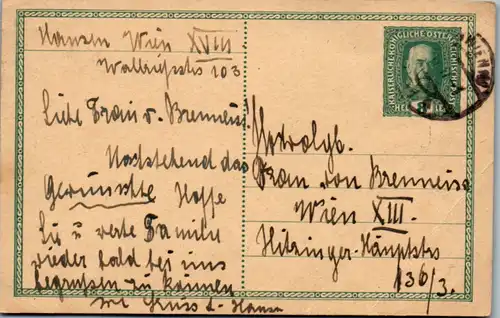 Hansen Wien XVIII
Wallrissstr 103
Liebe Frau v. Brenneis!
Nachstehend das
Gewünschte Hoffe
Sie u werte Familie
wieder bald bei uns
begrüssen zu können
mit Gruss L. Hansen
KAISERLICHE KÖNIGLICHE ÖSTERREICHISCHE POST
8
WIEN
Hochwolgb.
Frau von Brenneis
Wien XIII.
Hitzinger-Hauptstr
136/3.